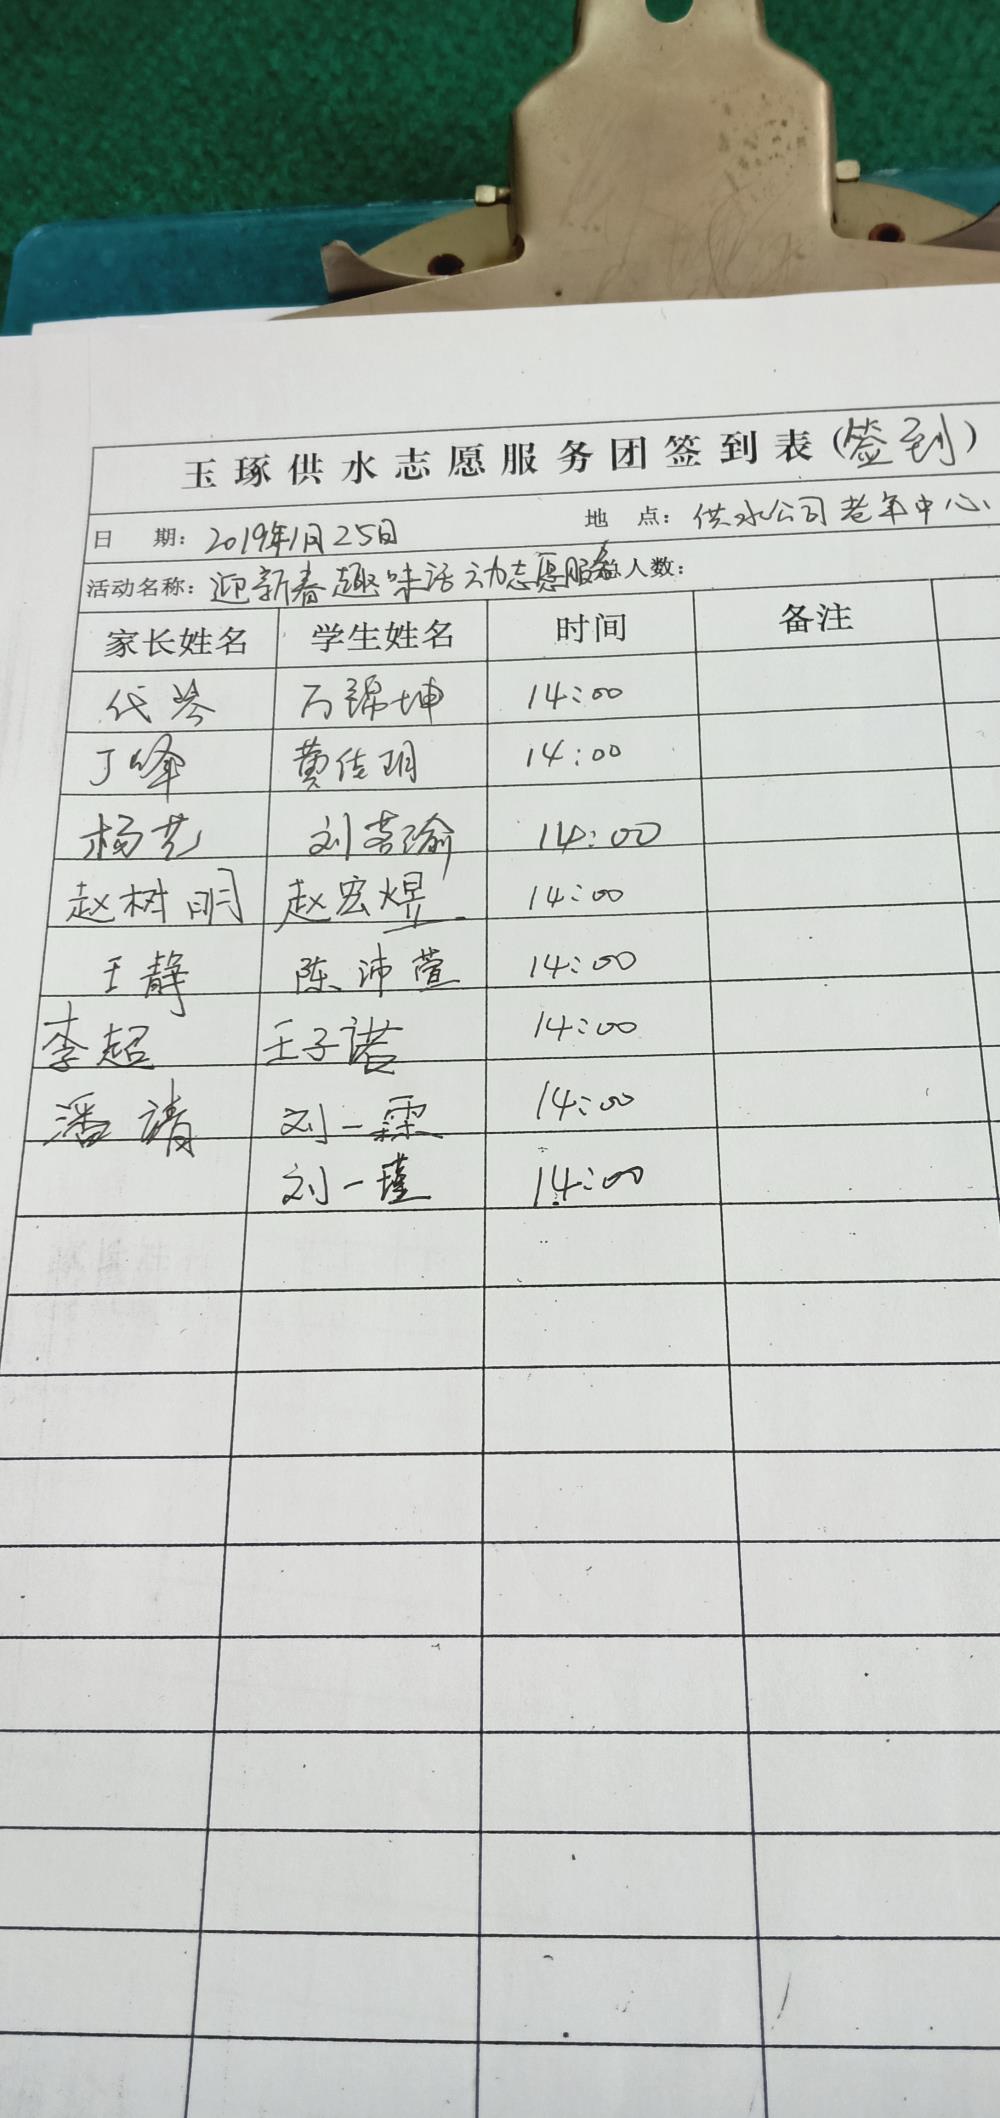 玉琢供水志愿服务团签到表(签到)
日 期: 2019年1月25日 地 点: 供水公司老年中心
活动名称: 迎新春趣味活动志愿服务 总人数:
家长姓名 学生姓名 时间 备注
代芩 万锦坤 14:00
丁峰 黄佳玥 14:00
杨艺 刘若瑜 14:00
赵树明 赵宏煜 14:00
王静 陈沛萱 14:00
李超 王子诺 14:00
潘请 刘一霖 14:00
刘一瑾 14:00